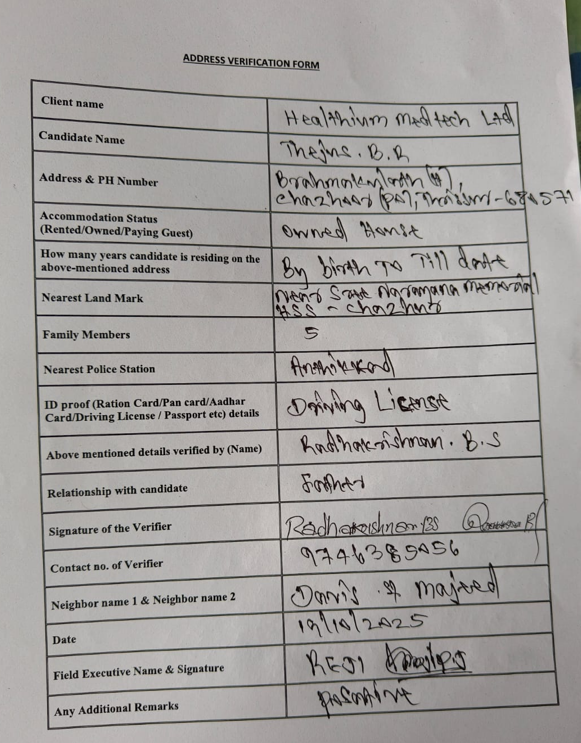 ADDRESS VERIFICATION FORM
Client name
Healthium Medtech Ltd
Candidate Name
Thejus. B.R
Address & PH Number
(H),
Chazhoor (PO), Thrissur - 680571
Accommodation Status
(Rented/Owned/Paying Guest)
Owned House
How many years candidate is residing on the
above-mentioned address
By birth to Till date
Nearest Land Mark
Near Narayana Memorial
HSS - Chazhur
Family Members
5
Nearest Police Station
Anthikkad
ID proof (Ration Card/Pan card/Aadhar
Card/Driving License / Passport etc) details
Driving License
Above mentioned details verified by (Name)
Radhakrishnan. B.S
Relationship with candidate
Father
Signature of the Verifier
Radhakrishnan BS
Contact no. of Verifier
Neighbor name 1 & Neighbor name 2
Davis & majeed
Date
19/10/2025
Field Executive Name & Signature
REJI
Any Additional Remarks
positive